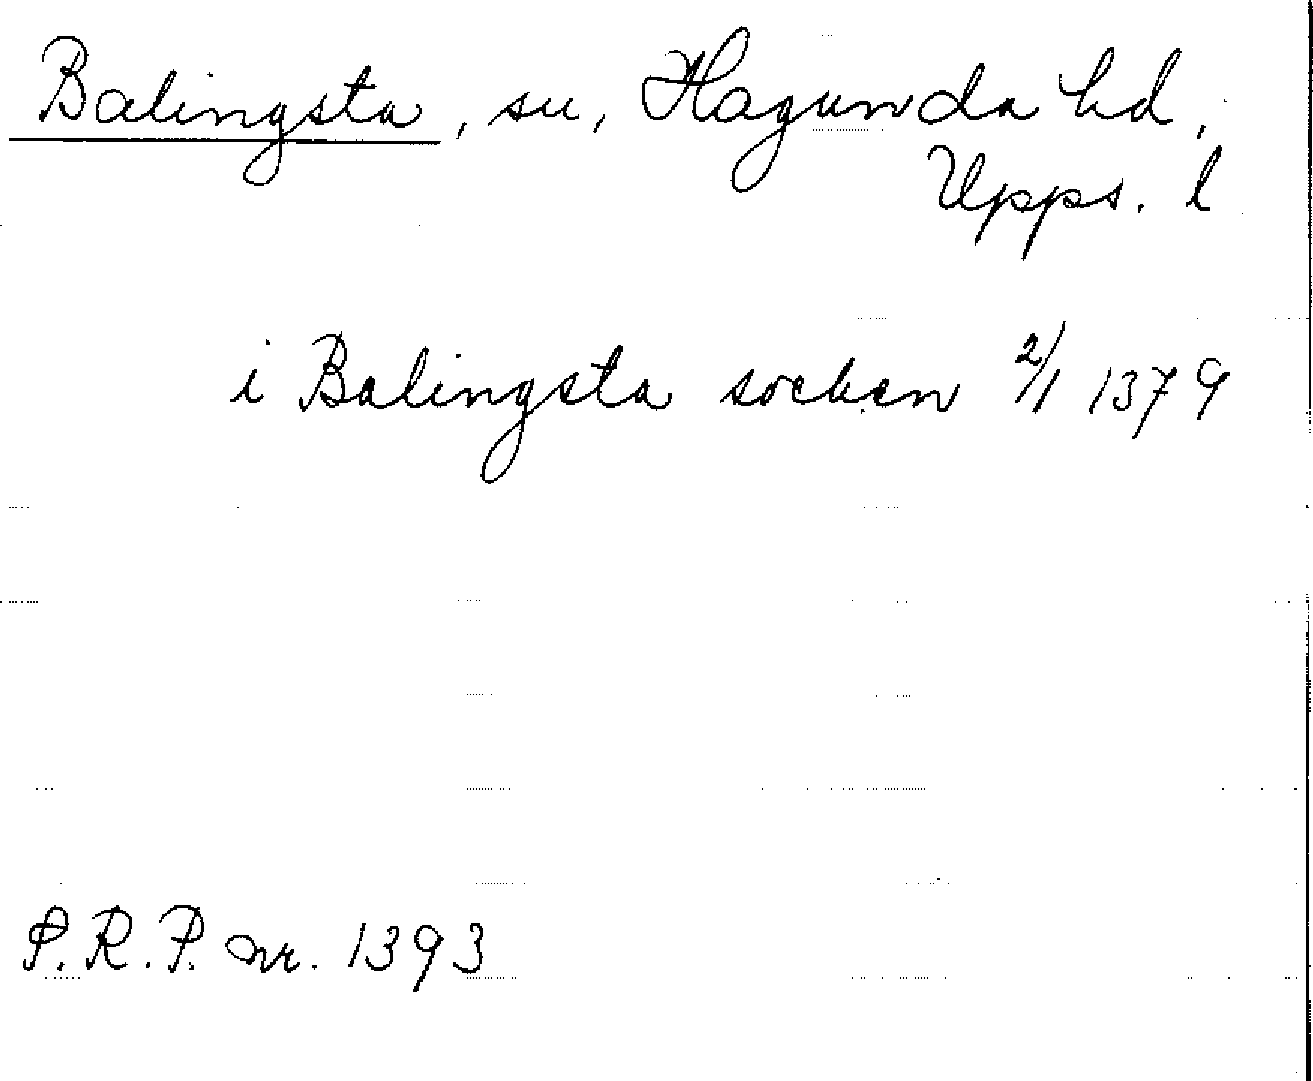 Balingsta, sn, Hagunda hd,
Upps. l
i Balingsta socken 2/1 1379
S.R.P. nr. 1393